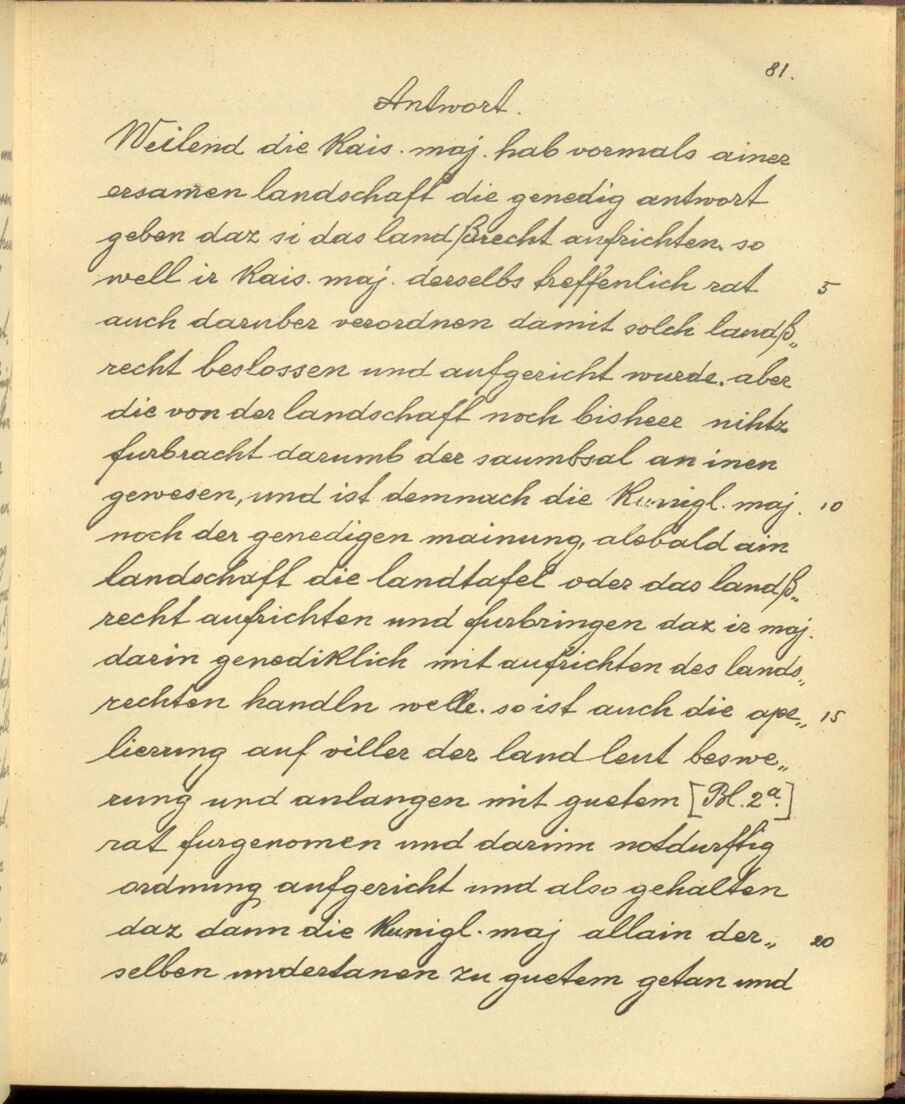 81.
Antwort.
Weilend die Kais. maj. hab vormals ainer
ersamen landschaft die genedig antwort
geben daz si das landßrecht aufrichten. so
well ir Kais. maj. derselbs treffenlich rat 5
auch daruber verordnen damit solch landß„
recht beslossen und aufgericht wurde. aber
die von der landschaft noch bisheer nihtz
furbracht darumb der saumbsal an inen
gewesen, und ist demnach die Kunigl. maj. 10
noch der genedigen mainung, alsbald ain
landschaft die landtafel oder das landß„
recht aufrichten und furbringen daz ir maj.
darin genediklich mit aufrichten des lands„
rechten handln welle. so ist auch die ape„ 15
lierung auf viller der land leut beswe„
rung und anlangen mit guetem [Bl. 2a.]
rat furgenomen und darinn notdurftig
ordnung aufgericht und also gehalten
daz dann die Kunigl. maj allain der„ 20
selben undertanen zu guetem getan und